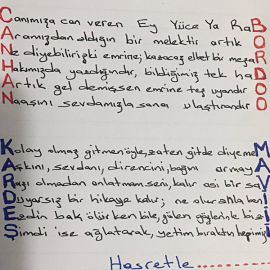 Canımıza can veren Ey Yüce Ya RaB
Aramızdan aldığın bir melektir artık O
Ne diyebilirizki emrine, elbet bir mezaR
Hakımızda yazdığındır, bildiğimiz tek haD
Artık gel demişsen emrine uyandır O
Naaşını sevdamızla sana ulaştırandır O
Kolay olmaz gitmen öyle, zaten gitde diyemeM
Aşkını, sevdanı, direncini, bağını
Razı olmadan anlatmam seni, kalır asi bir
Duyarsız bir hikaye kalır; ne olur
Ezdin bak ölürken bile, gülen
Şimdi ise ağlatarak, yetim bıraktın
Hasretle..........